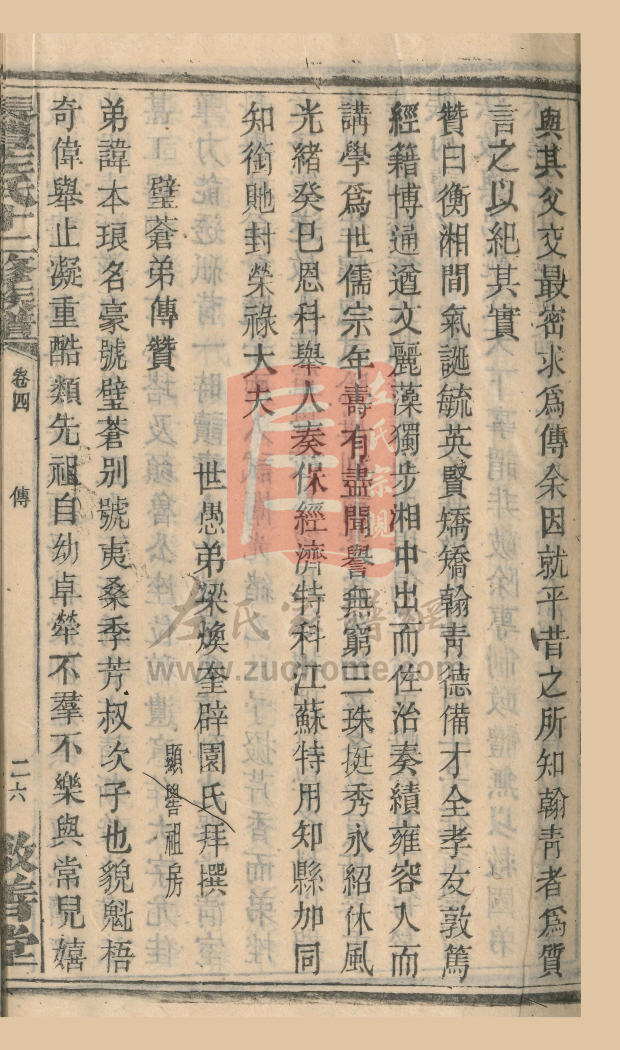 與其父交最密求爲傳余因就平昔之所知翰靑者爲質
言之以紀其實
贊曰衡湘間氣誕毓英賢矯矯翰靑德備才全孝友敦篤
經籍博通遒文麗藻獨步湘中出而佐治奏績雍容入而
講學爲世儒宗年壽有盡聞譽無窮二珠挺秀永紹休風
光緒癸巳恩科舉人奏保經濟特科江蘇特用知縣加同
知銜貤封榮祿大夫
世愚弟梁煥奎辟園氏拜撰
璧蒼弟傳贊
顯譽祖房
弟諱本琅名豪號璧蒼別號夷桑季芳叔次子也貌魁梧
奇偉舉止凝重酷類先祖自幼卓犖不羣不樂與常兒嬉
左氏十二修族譜
卷四
傳
二六
敬善堂
左氏宗親
左氏家譜網
www.zuohome.com